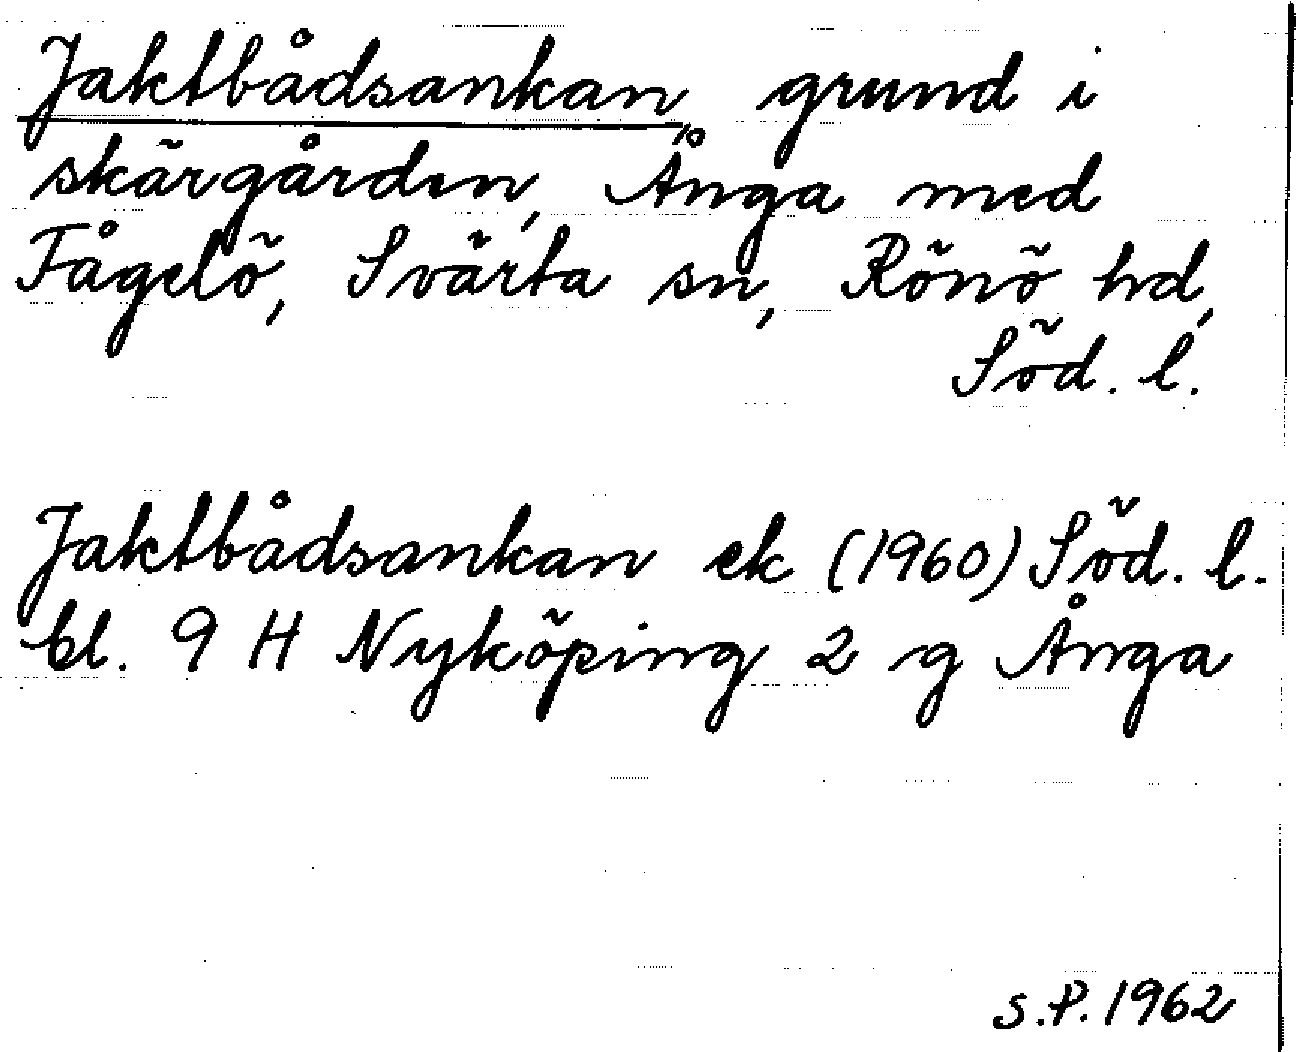 Jaktbådsankan, grund i
skärgården, Ånga med
Fågelö, Svärta sn, Rönö hd,
Söd. l.
Jaktbådsankan ek (1960) Söd. l.
bl. 9 H Nyköping 2 g Ånga
S.P. 1962